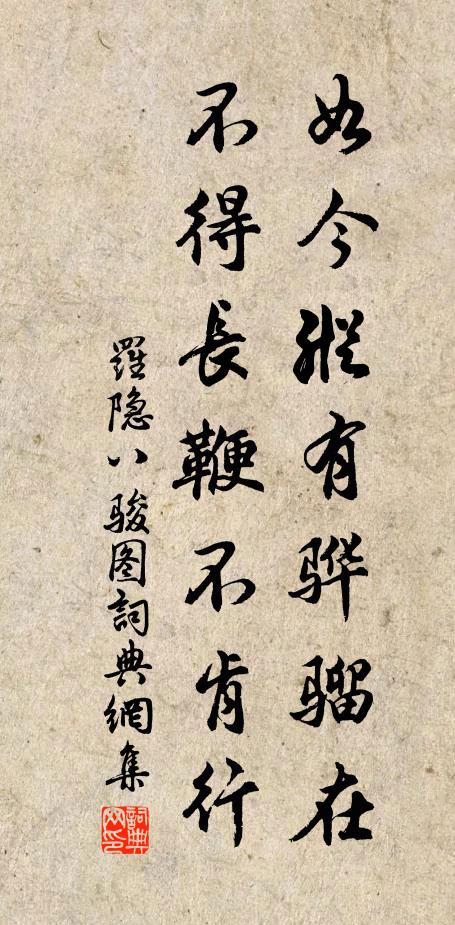 如今縱有骅骝在
不得長鞭不肯行
羅隐八駿图詞典網集
詞典网印